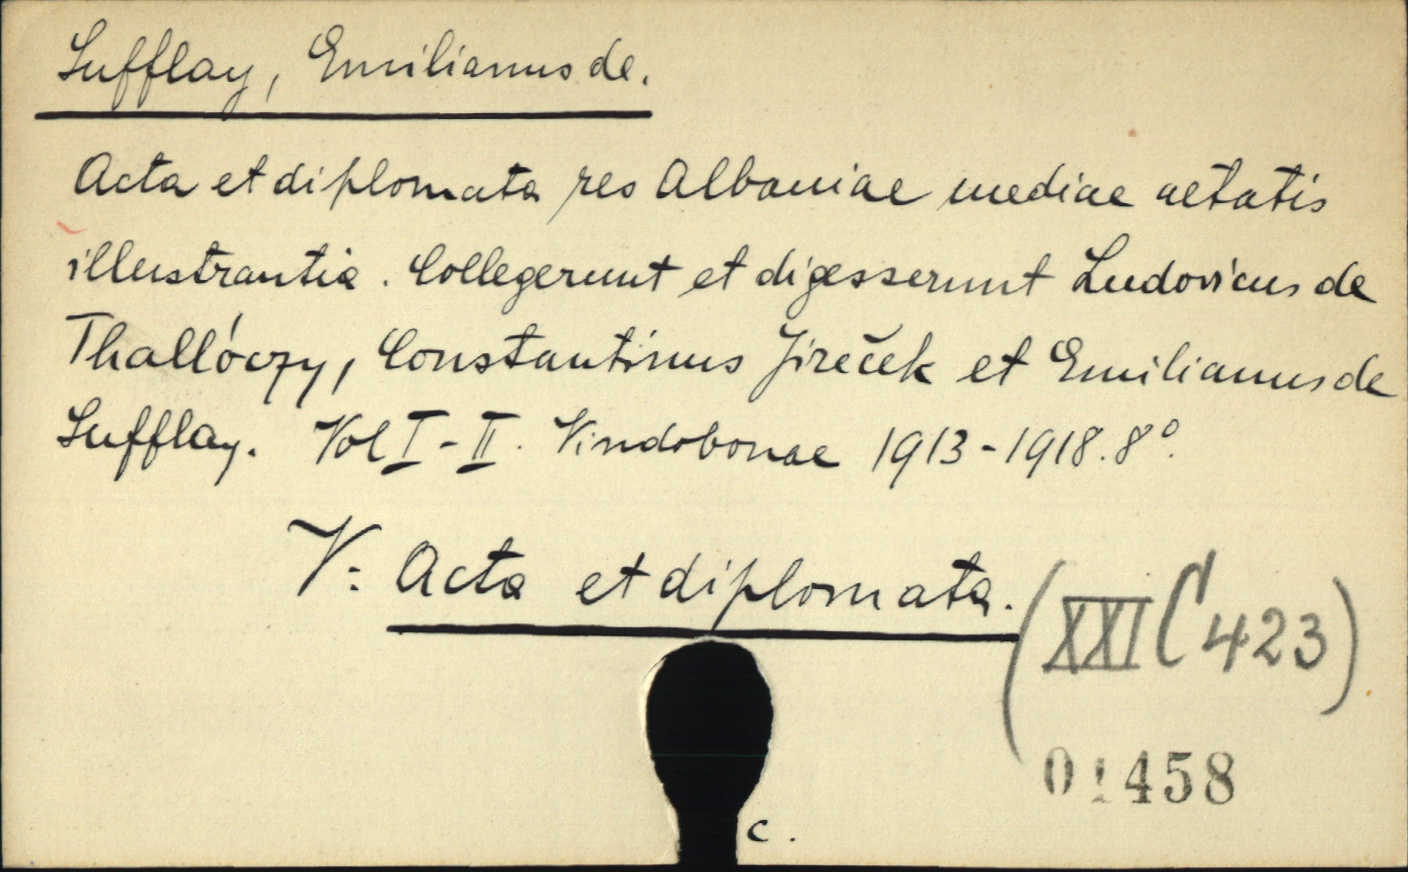 Sufflay, Emilianus de.
Acta et diplomata res Albaniae mediae aetatis
illustrantia. Collegerunt et digesserunt Ludovicus de
Thallóczy, Constantinus Jireček et Emilianus de
Sufflay. Vol I-II. Vindobonae 1913-1918. 8°.
V: Acta et diplomata.
(XXI C 423)
01458
c.